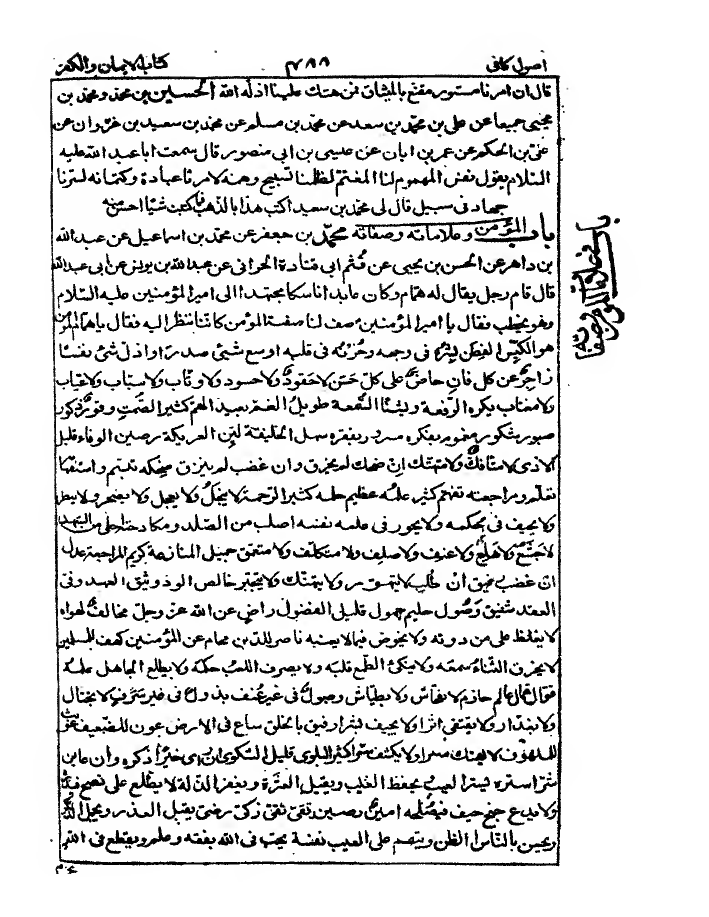 اصول كافى ٤٨٨ كتاب الايمان والكفر
قال ان امرنا مستور مقنع بالميثاق فمن هتك علينا اذله الله الحسين بن محمد ومحمد بن
يحيى جميعا عن على بن محمد بن سعد عن محمد بن مسلم عن محمد بن سعيد بن غزوان عن
على بن الحكم عن عمر بن ابان عن عيسى بن ابى منصور قال سمعت ابا عبد الله عليه
السلام يقول نفس المهموم لنا المغتم لظلمنا تسبيح وهمه لامرنا عبادة وكتمانه لسرنا
جهاد فى سبيل قال لى محمد بن سعيد اكتب هذا بالذهب فما كتبت شيئا احسن منه
باب المؤمن وعلاماته وصفاته محمد بن جعفر عن محمد بن اسماعيل عن عبد الله
بن داهر عن الحسن بن يحيى عن قثم ابى قتادة الحرانى عن عبد الله بن يونس عن ابى عبد الله
قال قام رجل يقال له همام وكان عابدا ناسكا مجتهدا الى امير المؤمنين عليه السلام
وهو يخطب فقال يا امير المؤمنين صف لنا صفة المؤمن كاننا ننظر اليه فقال يا همام المؤمن
هو الكيس الفطن بشره فى وجهه وحزنه فى قلبه اوسع شئ صدرا واذل شئ نفسا
زاجر عن كل فان حاض على كل حسن لا حقود ولا حسود ولا وثاب ولا سباب ولا عياب
ولا مغتاب يكره الرفعة ويشنأ السمعة طويل الغم بعيد الهم كثير الصمت وقور ذكور
صبور شكور مغموم بفكره مسرور بفقره سهل الخليقة لين العريكة رصين الوفاء قليل
الاذى لا متأفك ولا متهتك ان ضحك لم يخرق وان غضب لم ينزق ضحكه تبسم واستفهامه
تعلم ومراجعته تفهم كثير علمه عظيم حلمه كثير الرحمة لا يبخل ولا يعجل ولا يضجر ولا يبطر
ولا يحيف فى حكمه ولا يجور فى علمه نفسه اصلب من الصلد ومكادحته احلى من الشهد
لا جشع ولا هلع ولا عنف ولا صلف ولا متكلف ولا متعمق جميل المنازعة كريم المراجعة عدل
ان غضب رفيق ان طلب لا يتهور ولا يتهتك ولا يتجبر خالص الود وثيق العهد وفى
العقد شفيق وصول حليم حمول قليل الفضول راض عن الله عز وجل مخالف لهواه
لا يغلظ على من دونه ولا يخوض فيما لا يعنيه ناصر للدين محام عن المؤمنين كهف للمسلمين
لا يخرق الثناء سمعه ولا ينكئ الطمع قلبه ولا يصرف اللعب حكمه ولا يطلع الجاهل علمه
قوال عمال عالم حازم لا بفحاش ولا بطياش وصول فى غير عنف بذول فى غير سرف لا بختال
ولا بغدار ولا يقتفى اثرا ولا يحيف بشرا رفيق بالخلق ساع فى الارض عون للضعيف غوث
للملهوف لا يهتك سترا ولا يكشف سرا كثير البلوى قليل الشكوى ان رأى خيرا ذكره وان عاين
شرا ستره يستر العيب يحفظ الغيب ويقيل العثرة ويغفر الزلة لا يطلع على نصح فيذره
ولا يدع جنح حيف فيصلحه امين رصين تقى نقى زكى رضى يقبل العذر ويجمل الذكر
ويحسن بالناس الظن ويتهم على العيب نفسه يحب فى الله بفقه وعلم ويقطع فى الله